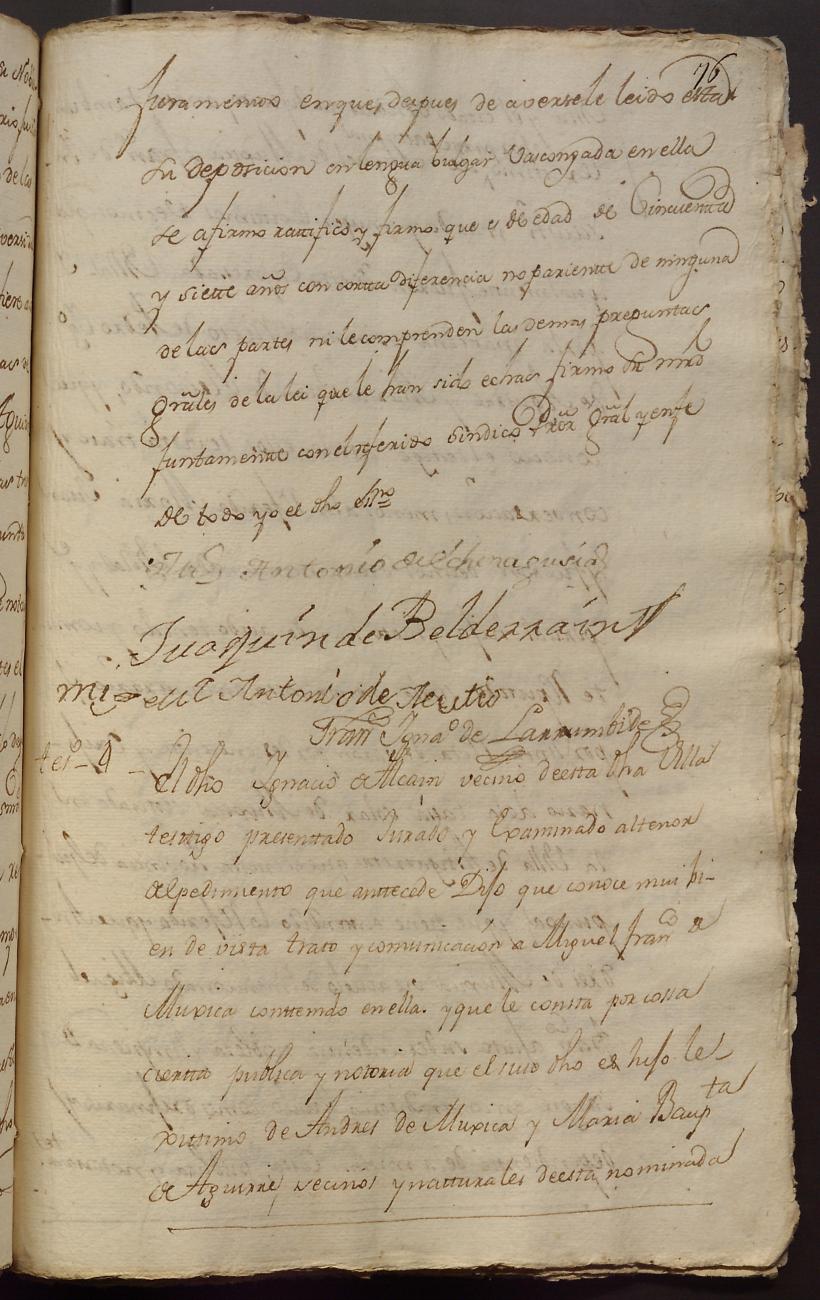 76
Juramento en que, despues de aversele leido esta
su deposicion en lengua bulgar Vascongada en ella
se afirmo rattifico y firmo que es de edad de Cincuenta
y siette años con cortta diferencia no parientte de ninguna
de lacs partes ni le comprenden las demas preguntacs
grãles de la lei que le han sido echacs firmo su mrd
Juntamente con el referido Sindico Prõr Grãl y en fe
de todo yo el dho esno
Antonio de Echenagusia
Juaquin de Belderrain
mi Antonio de
Franco Ignao de Larrumbide
tes-o 4 - El dho Ignacio de Alcain vecino de esta dha Villa
testigo presenttado Jurado y Examinado al tenor
del pedimento que anttecede Dijo que conoce mui bi-
en de vista trato y comunicación a Miguel Franco de
Muxica conttenido en ella. y que le consta por cossa
cierta publica y notoria que el suso dho es hijo le-
xittimo de Andres de Muxica y Maria Bapta
de Aguirre, vecinos y natturales de esta nominada